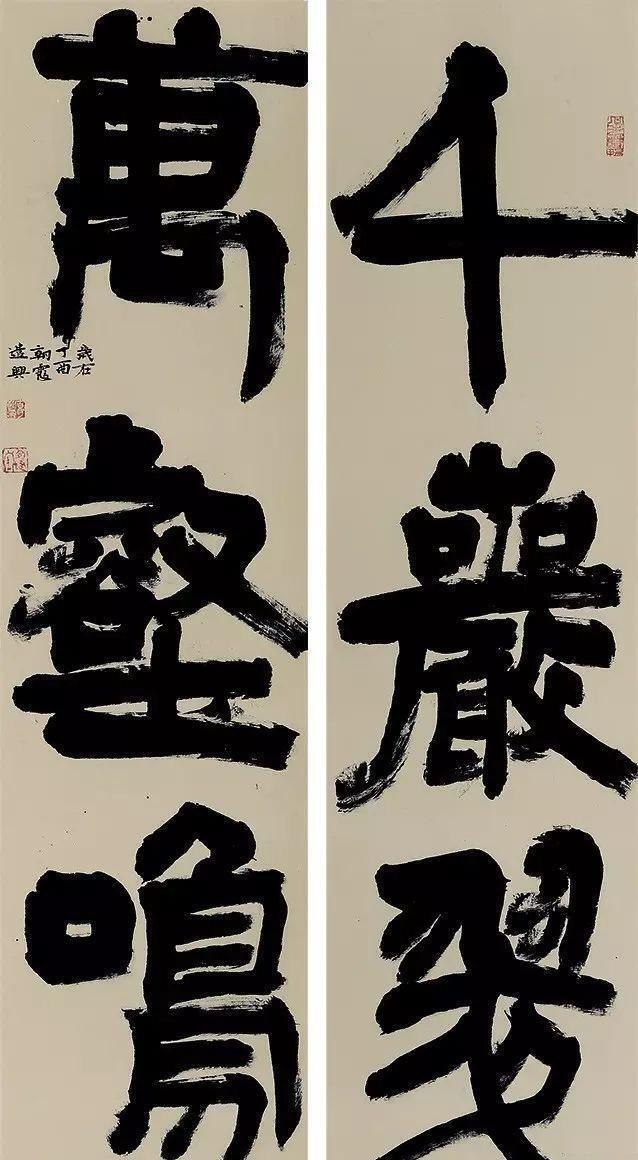 千巖
萬壑鳴
歲在
丁酉
朝霞
造興